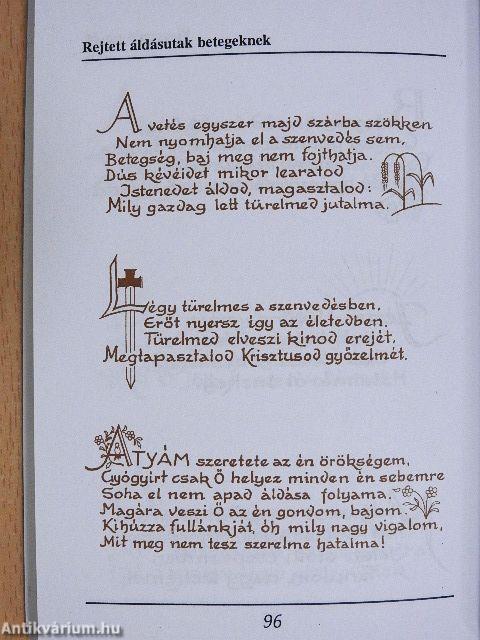 Rejtett áldásutak betegeknek
A vetés egyszer majd szárba szökken
Nem nyomhatja el a szenvedés sem,
Betegség, baj meg nem fojthatja.
Dús kévéidet mikor learatod
Istenedet áldod, magasztalod:
Mily gazdag lett türelmed jutalma.
Légy türelmes a szenvedésben,
Erőt nyersz így az életedben.
Türelmed elveszi kínod erejét,
Megtapasztalod Krisztusod győzelmét.
ATYÁM szeretete az én örökségem,
Gyógyírt csak Ő helyez minden én sebemre
Soha el nem apad áldása folyama.
Magára veszi Ő az én gondom, bajom.
Kihúzza fullánkját, óh mily nagy vigalom,
Mit meg nem tesz szerelme hatalma!
96
Antikvárium.hu